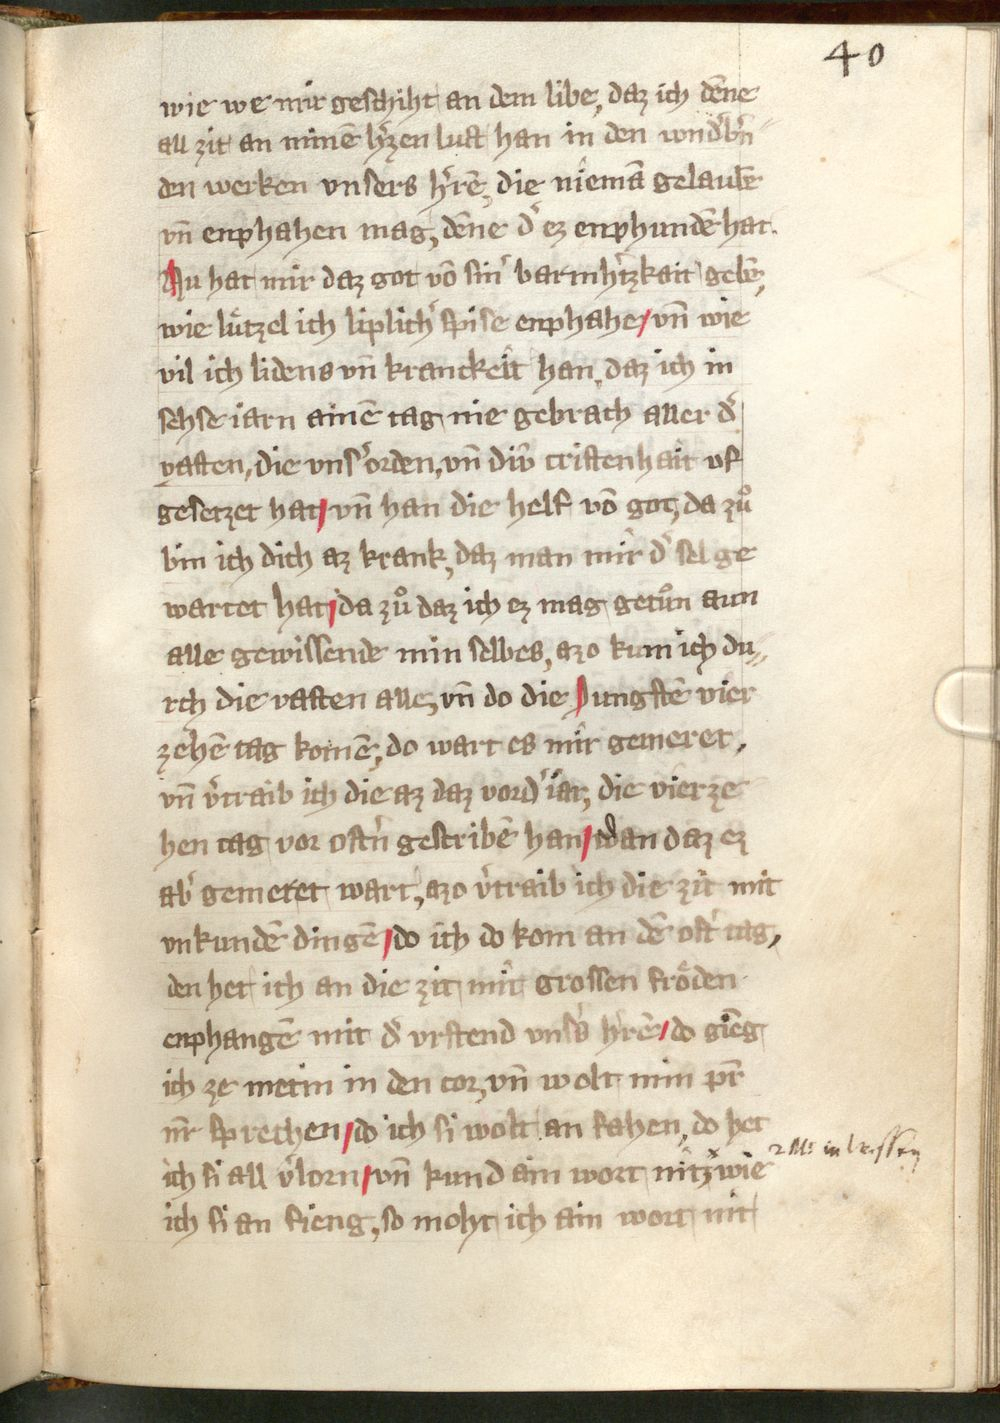 40
wie we mir geschiht an dem libe, daz ich dēne
all zit an minē h̾zen lust han in den wnd̾b̾n
den werken vnsers h̾rē, die niemā gelaubē
vn̄ enphahen mag, dēne d̾ ez enphundē hat.
Nu hat mir daz got vō sin̾ barmh̾tzkait gebē,
wie lu̍tzel ich liplich̾ spise enphahe / vn̄ wie
vil ich lidens vn̄ kranckeit han, daz ich in
sehse iarn ainē tag nie gebrach aller d̾
vasten, die vns̾ orden, vn̄ div̍ cristenhait vf
gesetzet hat / vn̄ han die helf vō got, da zuͦ
bin ich dich az krank, daz man mir d̾ sel ge
wartet hat / da zuͦ daz ich ez mag getuͦn aun
alle gewissende min selbes, azo kum ich du
rch die vasten alle, vn̄ do die Jungstē vier
zehē tag komē, do wart es mir gemeret,
vn̄ v̾traib ich die az daz vord̾ iar, die vierze
hen tag vor ostn̾ gescribē han / wan daz ez
ab̾ gemeret wart, azo v̾traib ich die zit mit
vnkundē dingē / do ich do kom an dē ost̾ tag,
den het ich an die zit mit grossen froͤden
enphangē mit d̾ vrstend vns̾s h̾rē / do gieng
ich ze metin in den cor, vn̄ wolt min pr̄
nr̄ sprechen / do ich si wolt an fahen, do het
ich si all v̾lorn / vn̄ kund ain wort nit, wie
ich si an fieng, so moht ich ain wort nit